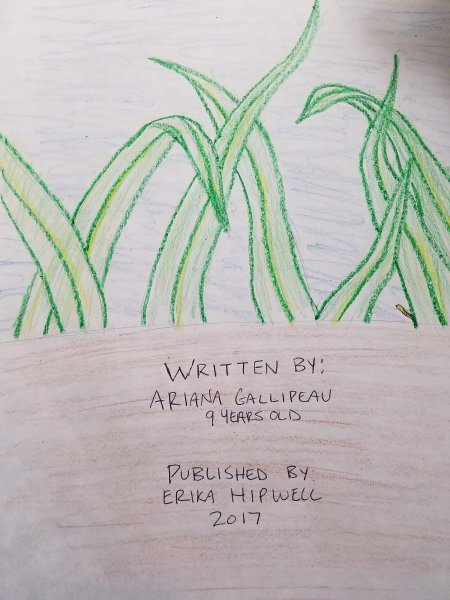 WRITTEN BY:
ARIANA GALLIPEAU
9 YEARS OLD
PUBLISHED BY:
ERIKA HIPWELL
2017